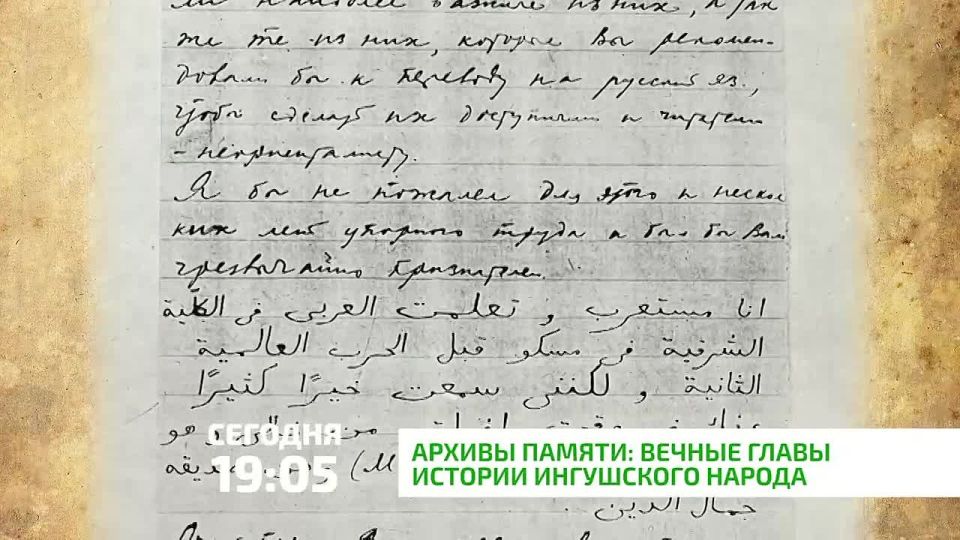 ли наиболее важные из них, а так
же те из них, которые Вы рекомен-
довали бы к переводу на русский яз.,
чтобы сделать их доступными и читателю
- неориенталисту.
Я бы не пожалел для этого и несколь
ких лет упорного труда и был бы Вам
чрезвычайно признателен.
انا مستعرب و تعلمت العربى فى الكلية
الشرقية فى مسكو قبل الحرب العالمية
الثانية و لكننى سمعت خيرًا كثيرًا
عنك فى من وهو
جمال الدين
СЕГОДНЯ
19:05
АРХИВЫ ПАМЯТИ: ВЕЧНЫЕ ГЛАВЫ
ИСТОРИИ ИНГУШСКОГО НАРОДА